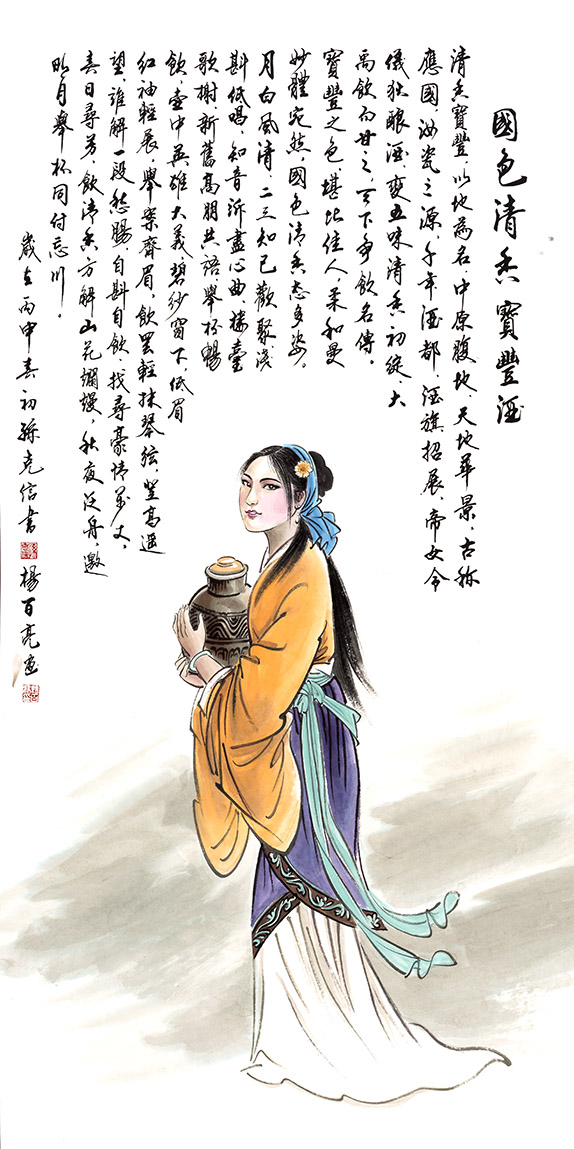 國色清香寶豐酒
清香寶豐，以地為名，中原腹地，天地華景，古称
應國，汝瓷之源，千年酒都，酒旗招展，帝女令
儀狄釀酒，變五味清香，初綻，大
禹飲而甘之，天下爭飲名傳。
寶豐之色，堪比佳人，柔和曼
妙體宛然，國色清香态多姿。
月白風清，二三知己歡聚，淺
斟低唱，知音訴盡心曲，樓臺
歌榭新舊高朋共語，舉杯暢
飲，壺中英雄大義，碧紗窗下，低眉
紅袖輕展，舉案齊眉，飲罢輕抹琴弦，登高遥
望，誰解一段愁腸，自斟自飲，找尋豪情萬丈，
春日尋芳，飲清香方解山花爛熳，秋夜泛舟，邀
明月舉杯同付忘川。
歲在丙申春初孫克信書
楊百亮画